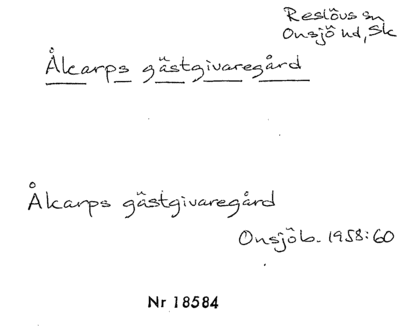 Reslövs sn
Onsjö hd, Sk
Ålcarps gästgivaregård
Ålcarps gästgivaregård
Onsjöb. 1958:60
Nr 18584